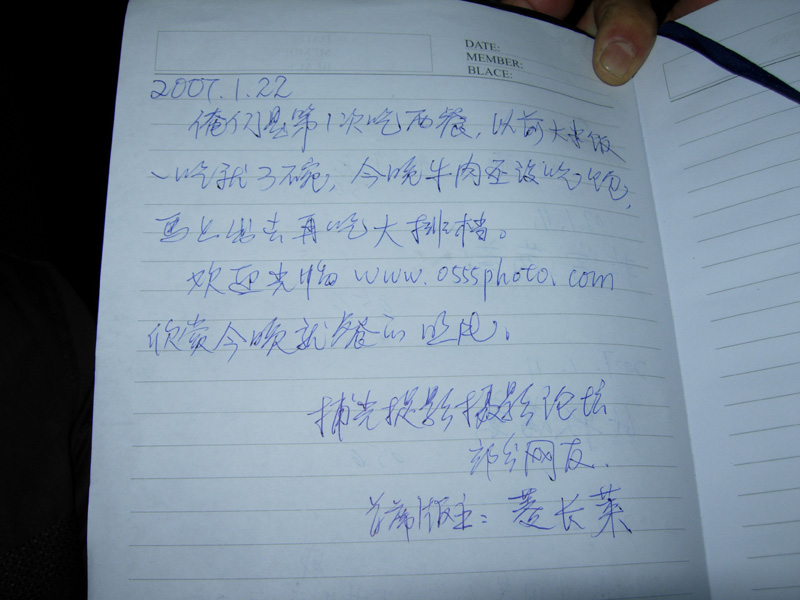 DATE:
MEMBER:
BLACE:
2007.1.22
俺们是第1次吃西餐,以前大米饭
一吃就3碗,今晚牛肉还没吃饱,
马上出去再吃大排档。
欢迎光临 www.0555photo.com
欣赏今晚就餐的照片。
捕光捉影摄影论坛
部分网友.
首席版主:姜长莱